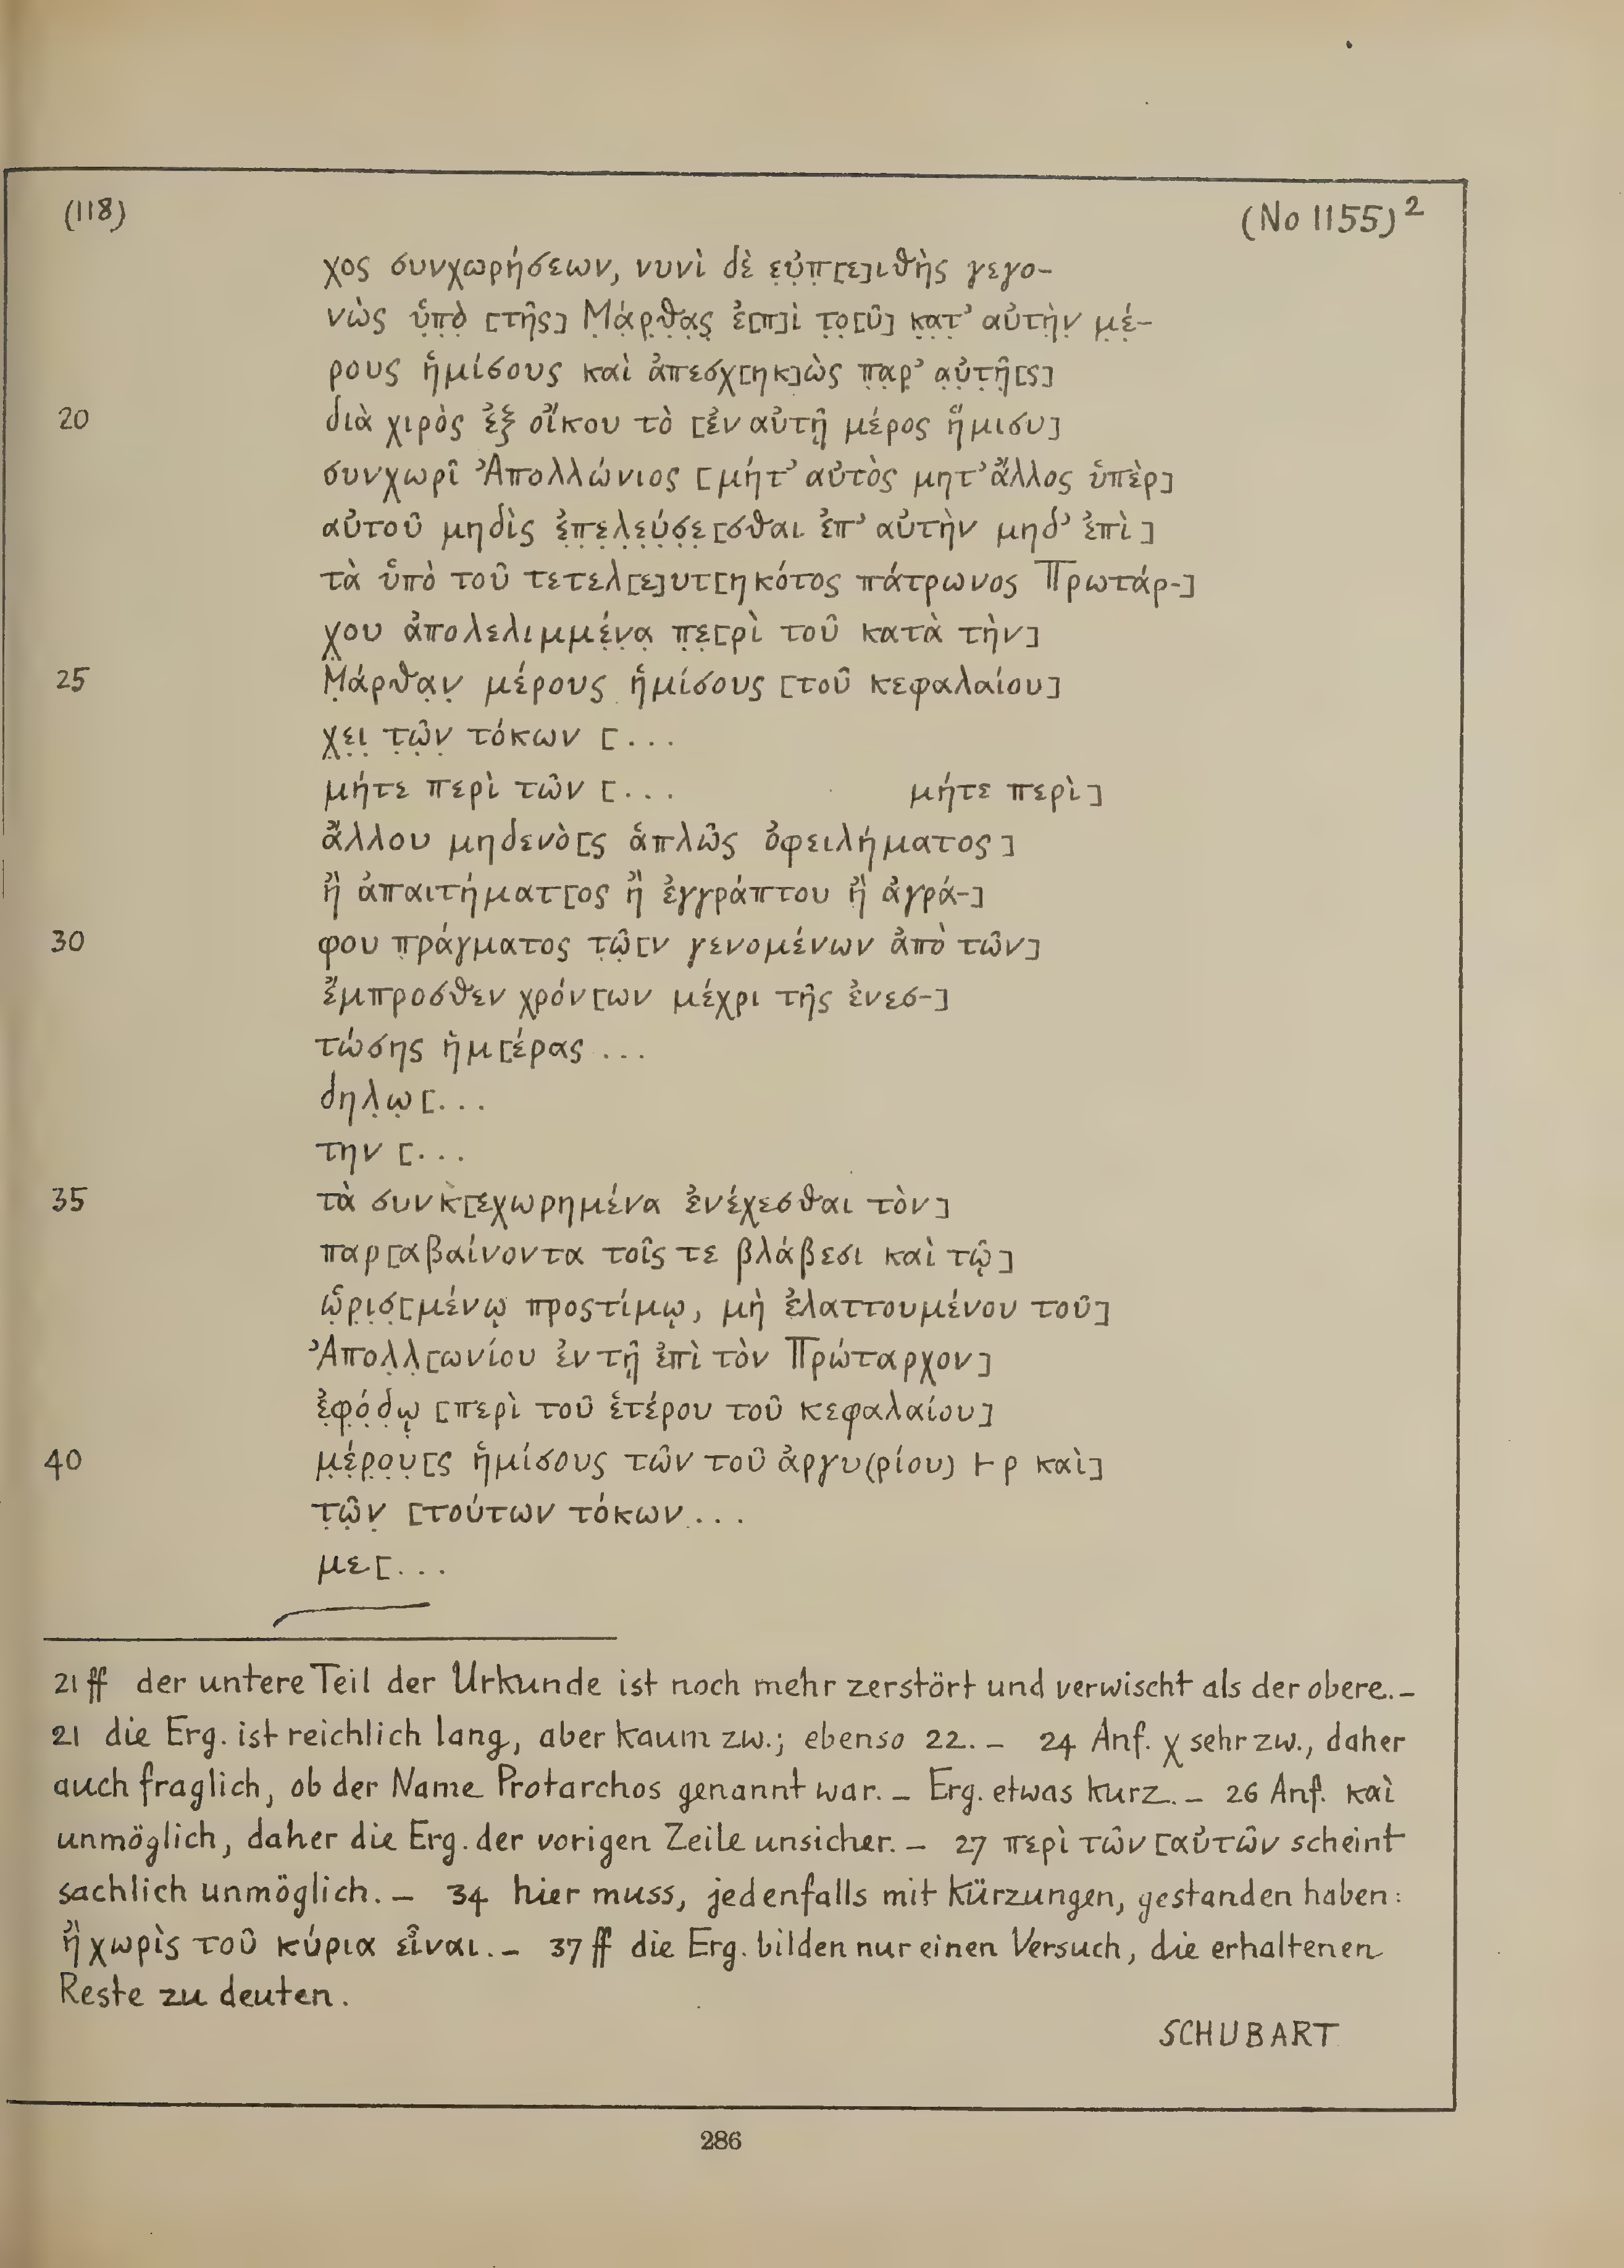 (118) (No 1155)²
χος συνχωρήσεων, νυνὶ δὲ ε̣ὐ̣π̣[ε]ιθὴς γεγο-
νὼς ὑ̣π̣ὸ̣ [τῆς] Μ̣ά̣ρ̣θ̣α̣ς̣ ἐ[π]ὶ τ̣ο̣[ῦ] κ̣α̣τ̣’ αὐτὴ̣ν̣ μ̣έ̣-
ρους ἡμίσους καὶ ἀπεσχ[ηκ]ὼς π̣α̣ρ̣’ α̣ὐ̣τ̣ῆ̣[ς]
20 διὰ χιρὸς ἐξ οἴκου τὸ [ἐν αὐτῇ μέρος ἥμισυ]
συνχωρῖ Ἀπολλώνιος [μήτ’ αὐτὸς μητ’ ἄλλος ὑπὲρ]
αὐτοῦ μηδὶς ἐ̣π̣ε̣λ̣ε̣ύ̣σ̣ε̣[σθαι ἐπ’ αὐτὴν μηδ’ ἐπὶ]
τὰ ὑπὸ τοῦ τετελ[ε]υτ[ηκότος πάτρωνος Πρωτάρ-]
χ̣ου ἀπολελιμμέ̣ν̣α̣ π̣ε̣[ρὶ τοῦ κατὰ τὴν]
25 Μ̣άρθα̣ν̣ μέρους ἡμίσους [τοῦ κεφαλαίου]
χ̣ε̣ι̣ τ̣ῶ̣ν̣ τόκων [...
μήτε περὶ τῶν [... μήτε περὶ]
ἄλλου μηδενὸ[ς ἁπλῶς ὀφειλήματος]
ἢ ἀπαιτήματ[ος ἢ ἐγγράπτου ἢ ἀγρά-]
30 φου π̣ράγματος τ̣ῶ̣[ν γενομένων ἀπὸ τῶν]
ἔμπροσθεν χρόν[ων μέχρι τῆς ἐνεσ-]
τώσης ἡμ[έρας ...
δηλ̣ω̣[...
την [...
35 τὰ συνκ[εχωρημένα ἐνέχεσθαι τὸν]
παρ[αβαίνοντα τοῖς τε βλάβεσι καὶ τῷ]
ὡ̣ρ̣ι̣σ̣[μένῳ προςτίμῳ, μὴ ἐλαττουμένου τοῦ]
Ἀπολ̣λ̣[ωνίου ἐν τῇ ἐπὶ τὸν Πρώταρχον]
ἐ̣φ̣ό̣δ̣ῳ̣ [περὶ τοῦ ἑτέρου τοῦ κεφαλαίου]
40 μ̣έ̣ρ̣ο̣υ̣[ς ἡμίσους τῶν τοῦ ἀργυ(ρίου) ⊢ ρ καὶ]
τ̣ῶ̣ν̣ [τούτων τόκων ...
με[...
21 ff der untere Teil der Urkunde ist noch mehr zerstört und verwischt als der obere. –
21 die Erg. ist reichlich lang, aber kaum zw.; ebenso 22. – 24 Anf. χ sehr zw., daher
auch fraglich, ob der Name Protarchos genannt war. – Erg. etwas kurz. – 26 Anf. καὶ
unmöglich, daher die Erg. der vorigen Zeile unsicher. – 27 περὶ τῶν [αὐτῶν scheint
sachlich unmöglich. – 34 hier muss, jedenfalls mit Kürzungen, gestanden haben:
ἢ χωρὶς τοῦ κύρια εἶναι. – 37 ff die Erg. bilden nur einen Versuch, die erhaltenen
Reste zu deuten.
SCHUBART
286